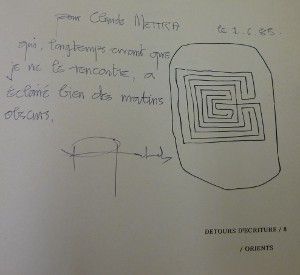 pour Claude METTRA
le 1.6.85.
qui, longtemps avant que
je ne le rencontre, a
éclairé bien des matins
obscurs.
DETOURS D'ECRITURE / 8
/ ORIENTS